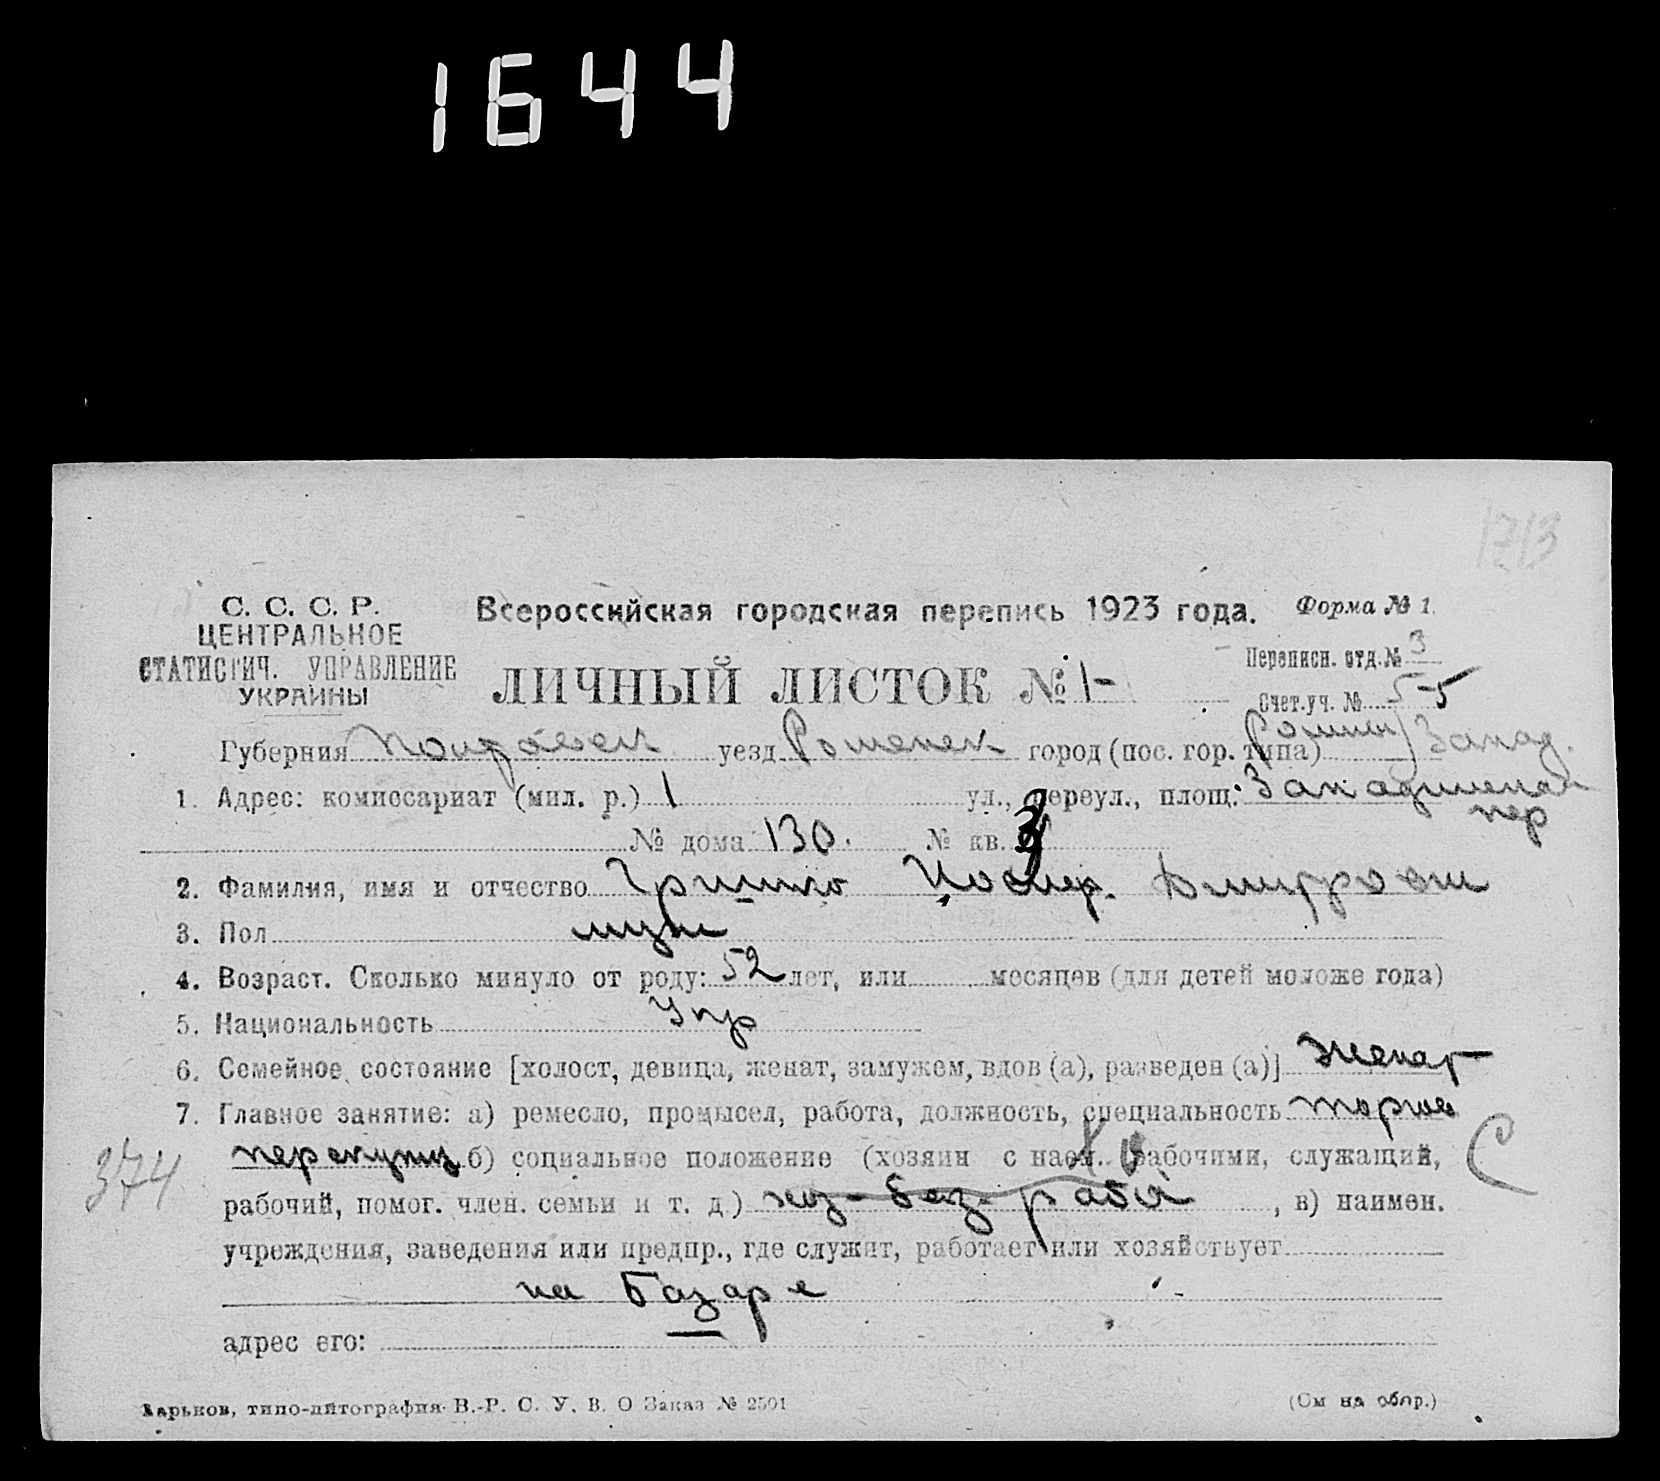 1644
1713
С. С. С. Р.
ЦЕНТРАЛЬНОЕ
СТАТИСТИЧ. УПРАВЛЕНИЕ
УКРАИНЫ
Всероссийская городская перепись 1923 года.
Форма № 1.
Переписн. отд. № 3
ЛИЧНЫЙ ЛИСТОК № 1-
Счет. уч. № 5-5
Губерния Полтавск уезд Роменск город (пос. гор. типа) Ромны Запад.
1. Адрес: комиссариат (мил. р.) 1 ул., переул., площ.: пер
№ дома 130. № кв.
2. Фамилия, имя и отчество Гришко
3. Пол муж
4. Возраст. Сколько минуло от роду: 52 лет, или месяцев (для детей моложе года)
5. Национальность Укр
6. Семейное состояние [холост, девица, женат, замужем, вдов (а), разведен (а)] женат
7. Главное занятие: а) ремесло, промысел, работа, должность, специальность торгов
374 б) социальное положение (хозяин с наем. рабочими, служащий, С
рабочий, помог. член. семьи и т. д.) хоз-без-раб , в) наимен.
учреждения, заведения или предпр., где служит, работает или хозяйствует
на базаре
адрес его:
Харьков, типо-литография В.-Р. С. У. В. О Заказ № 2501
(См на обор.)